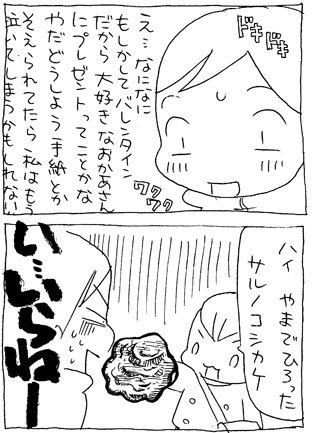 ドキ
ドキ
え…なになに
もしかしてバレンタイン
だから 大好きなおかあさん
にプレゼントってことかな
やだどうしよう手紙とか
そえられてたら 私はもう
泣いてしまうかもしれない
ワク
ワク
ハイ やまでひろった
サルノコシカケ
い…いらねー